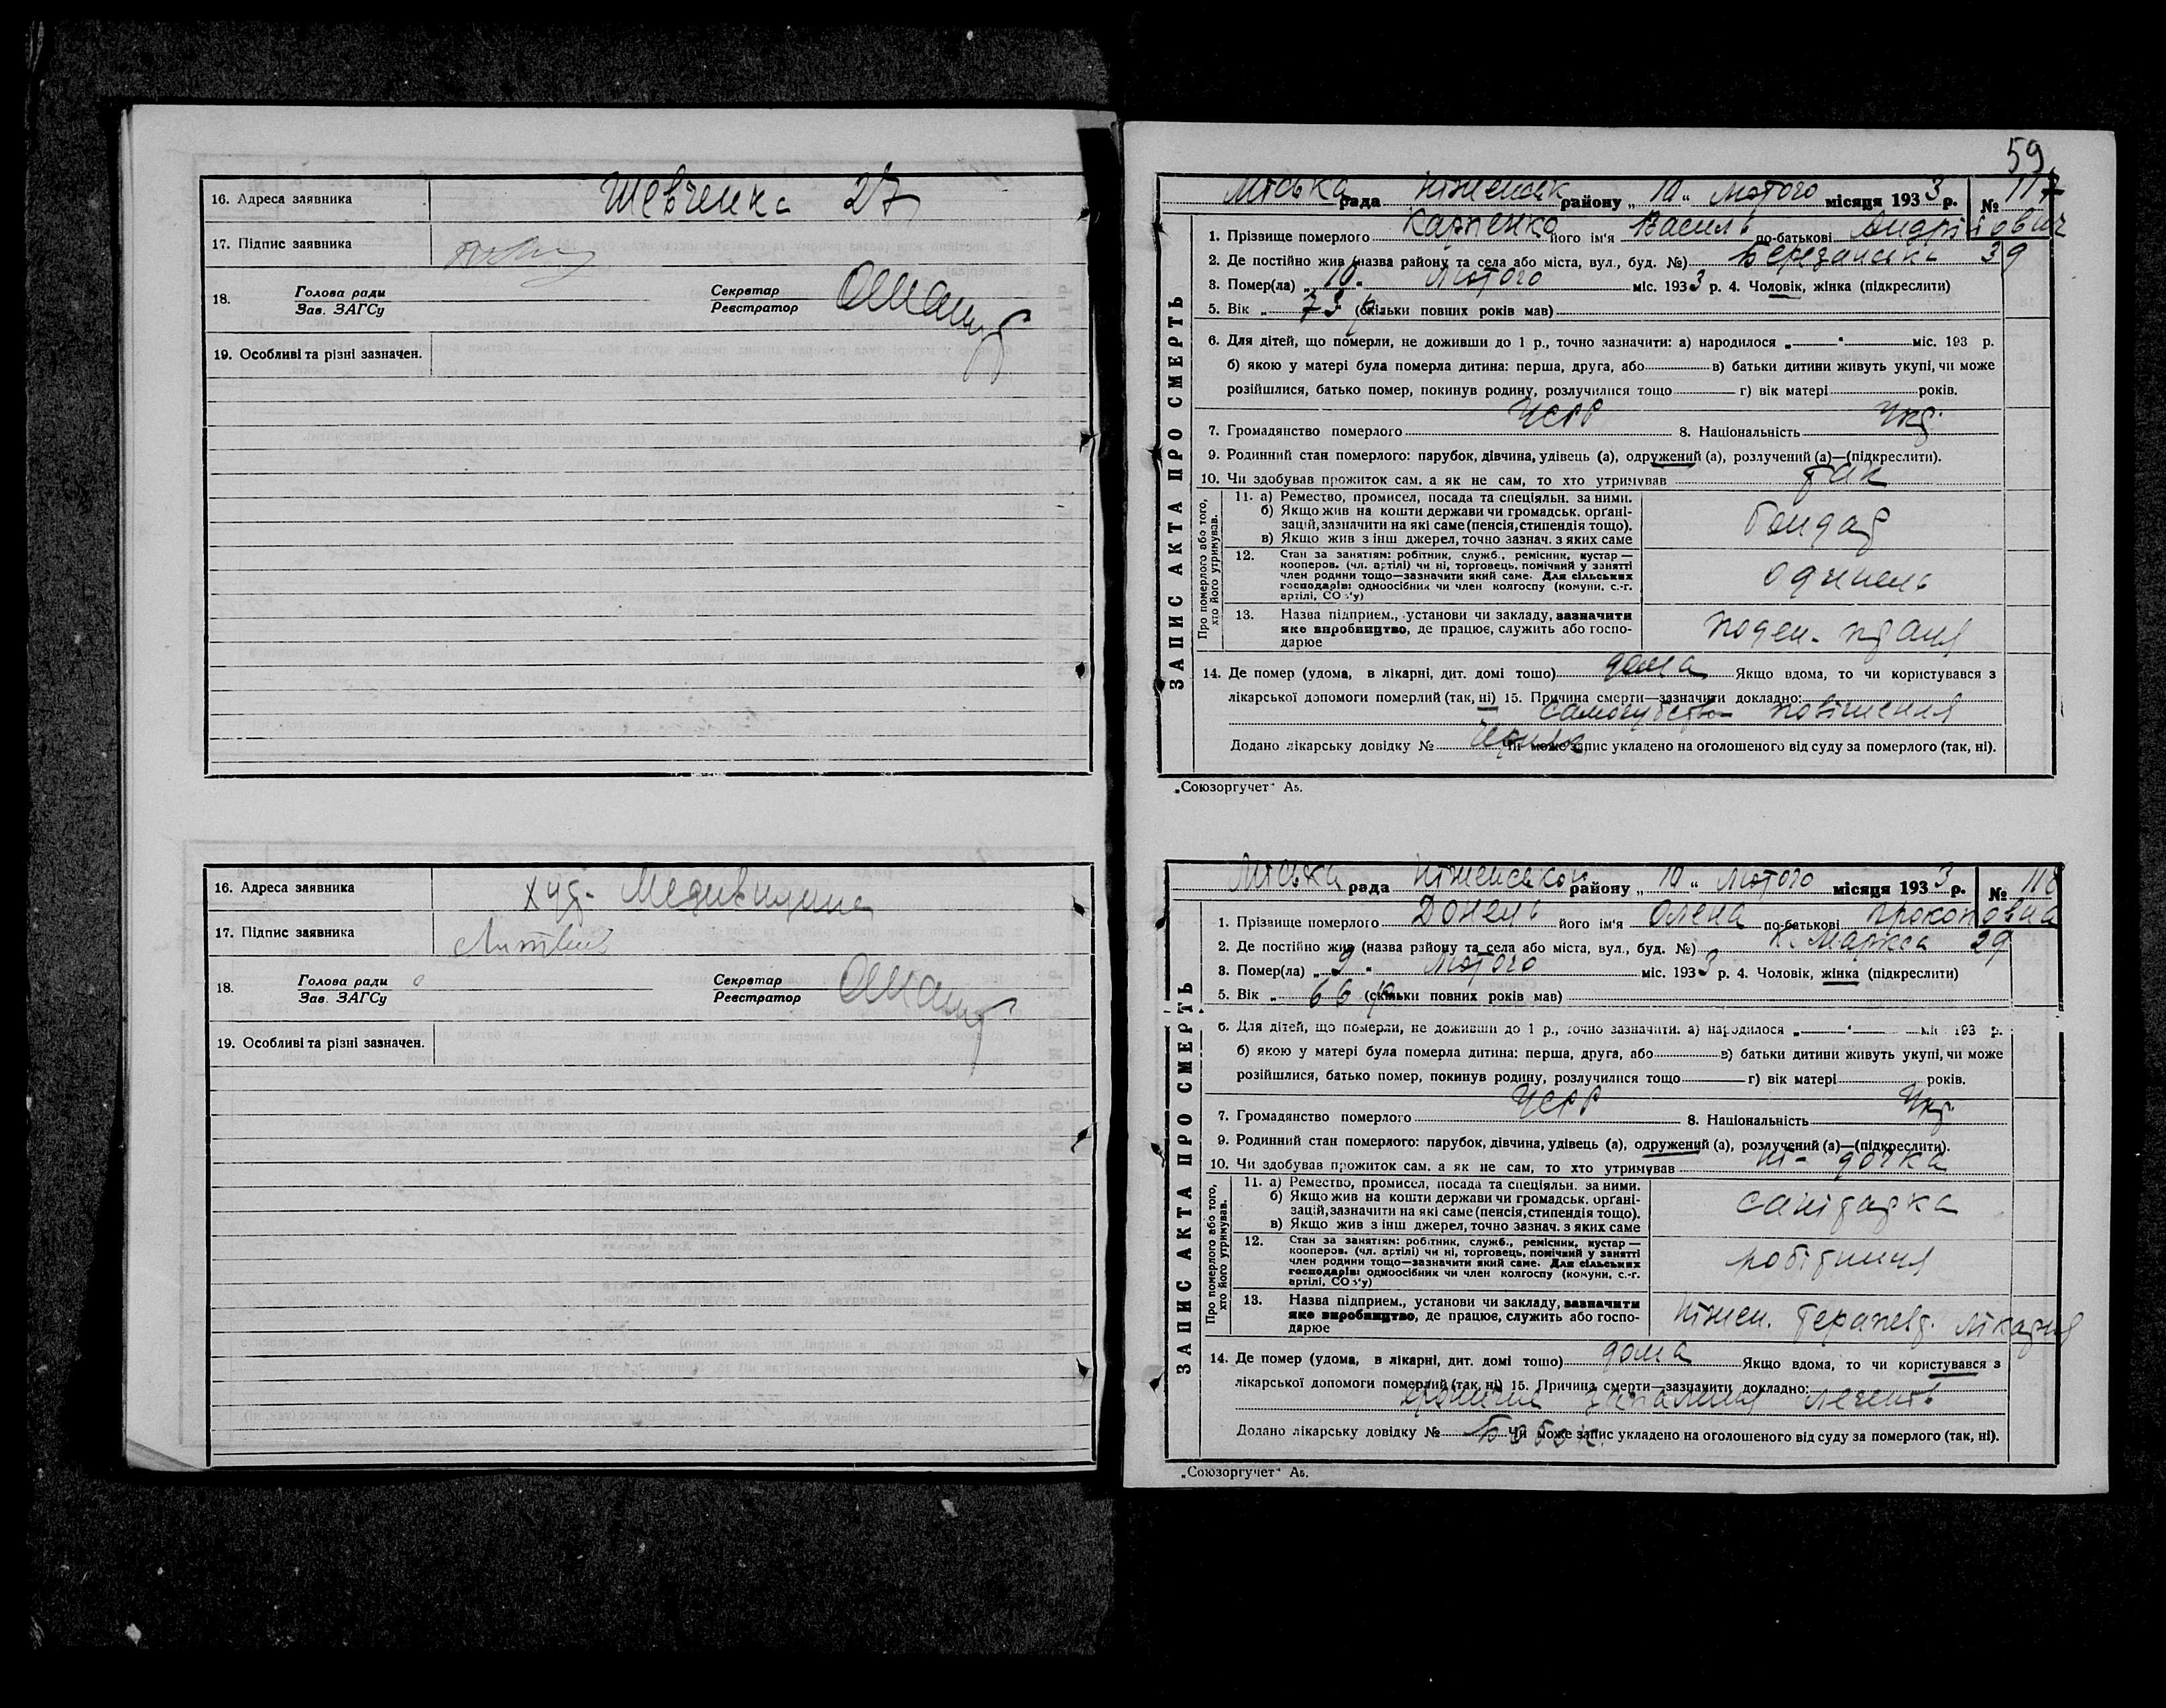 16. Адреса заявника Шевченка 27
17. Підпис заявника
18. Голова ради Зав. ЗАГСу Секретар Реєстратор
19. Особливі та різні зазначен.
16. Адреса заявника хут.
17. Підпис заявника Литвин
18. Голова ради Зав. ЗАГСу Секретар Реєстратор
19. Особливі та різні зазначен.
59
ЗАПИС АКТА ПРО СМЕРТЬ
Міська рада Ніженськ району „ 10 “ Лютого місяця 1933 р. № 117
1. Прізвище померлого Карпенко його ім'я Василь по-батькові Андрійович
2. Де постійно жив (назва району та села або міста, вул., буд. №) Березанська 39
3. Помер(ла) „ 10 “ Лютого міс. 1933 р. 4. Чоловік, жінка (підкреслити)
5. Вік „ 73 р (скільки повних років мав)
6. Для дітей, що померли, не доживши до 1 р., точно зазначити: а) народилося „ “ міс. 193 р.
б) якою у матері була померла дитина: перша, друга, або в) батьки дитини живуть укупі, чи може
розійшлися, батько помер, покинув родину, розлучилися тощо г) вік матері років.
7. Громадянство померлого УСРР 8. Національність Укр.
9. Родинний стан померлого: парубок, дівчина, удівець (а), одружений (а), розлучений (а)—(підкреслити).
10. Чи здобував прожиток сам, а як не сам, то хто утримував так
Про померлого або того, хто його утримував.
11. а) Ремество, промисел, посада та спеціяльн. за ними.
б) Якщо жив на кошти держави чи громадськ. орґані-
зацій, зазначити на які саме (пенсія, стипендія тощо).
в) Якщо жив з інш джерел, точно зазнач. з яких саме
бондар
12. Стан за занятіям: робітник, служб., ремісник, кустар —
кооперов. (чл. артілі) чи ні, торговець, помічний у занятті
член родини тощо—зазначити який саме. Для сільських
господарів: одноосібник чи член колгоспу (комуни, с.-г.
артілі, СОЗ'у)
13. Назва підприєм., установи чи закладу, зазначити
яке виробництво, де працює, служить або госпо-
дарює
поден. праця
14. Де помер (удома, в лікарні, дит. домі тощо) дома Якщо вдома, то чи користувався з
лікарської допомоги померлий (так, ні) 15. Причина смерти—зазначити докладно:
самогубство повішення
Додано лікарську довідку № Чи може запис укладено на оголошеного від суду за померлого (так, ні).
„Союзоргучет“ А5.
ЗАПИС АКТА ПРО СМЕРТЬ
Міська рада Ніженської району „ 10 “ Лютого місяця 1933 р. № 118
1. Прізвище померлого Донець його ім'я Олена по-батькові Прокоповна
2. Де постійно жив (назва району та села або міста, вул., буд. №) К. Маркса 29
3. Помер(ла) „ 9 “ Лютого міс. 1933 р. 4. Чоловік, жінка (підкреслити)
5. Вік „ 66 р (скільки повних років мав)
6. Для дітей, що померли, не доживши до 1 р., точно зазначити: а) народилося „ “ міс 193 р.
б) якою у матері була померла дитина: перша, друга, або в) батьки дитини живуть укупі, чи може
розійшлися, батько помер, покинув родину, розлучилися тощо г) вік матері років.
7. Громадянство померлого УСРР 8. Національність Укр.
9. Родинний стан померлого: парубок, дівчина, удівець (а), одружений (а), розлучений (а)—(підкреслити).
10. Чи здобував прожиток сам, а як не сам, то хто утримував ні - дочка
Про померлого або того, хто його утримував.
11. а) Ремество, промисел, посада та спеціяльн. за ними.
б) Якщо жив на кошти держави чи громадськ. орґані-
зацій, зазначити на які саме (пенсія, стипендія тощо).
в) Якщо жив з інш джерел, точно зазнач. з яких саме
санітарка
12. Стан за занятіям: робітник, служб., ремісник, кустар —
кооперов. (чл. артілі) чи ні, торговець, помічний у занятті
член родини тощо—зазначити який саме. Для сільських
господарів: одноосібник чи член колгоспу (комуни, с.-г.
артілі, СОЗ'у)
робітниця
13. Назва підприєм., установи чи закладу, зазначити
яке виробництво, де працює, служить або госпо-
дарює
Ніжен. Терапевт. лікарня
14. Де помер (удома, в лікарні, дит. домі тощо) дома Якщо вдома, то чи користувався з
лікарської допомоги померлий (так, ні) 15. Причина смерти—зазначити докладно:
запалення легенів
Додано лікарську довідку № Чи може запис укладено на оголошеного від суду за померлого (так, ні).
„Союзоргучет“ А5.